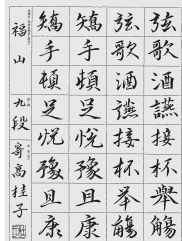 弦歌酒讌接杯舉觴
弦歌酒讌接杯举觴
矯手頓足悦豫且康
矯手頓足悦豫且康
福山 九段 桂子